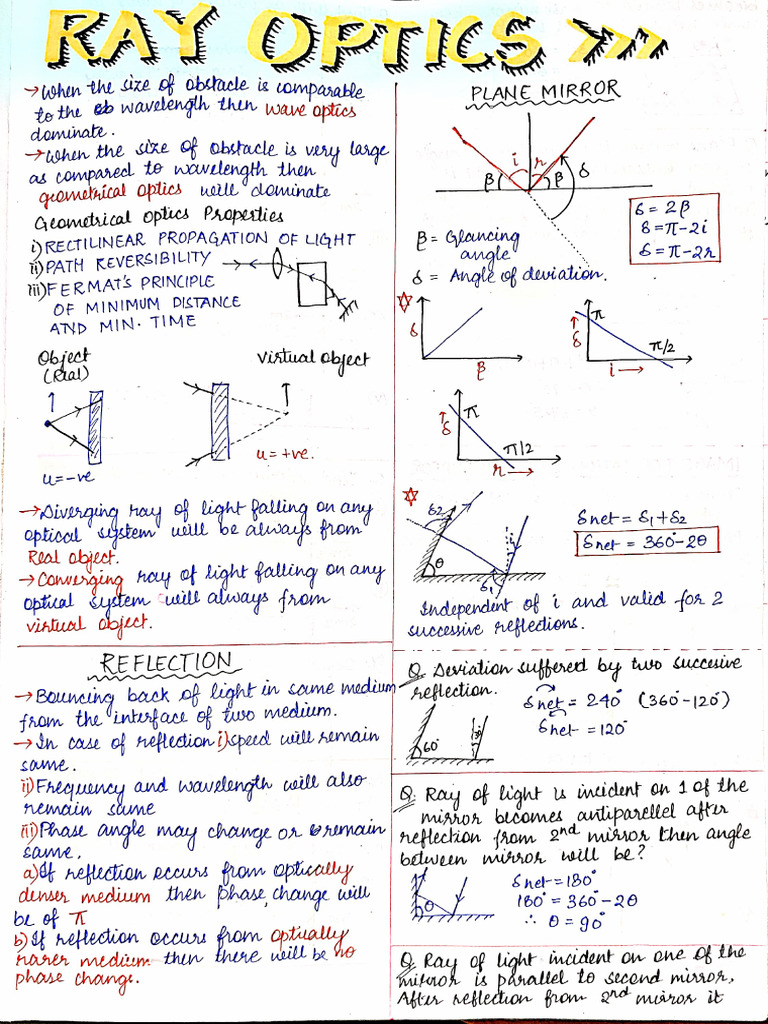 RAY OPTICS >>>
→ When the size of obstacle is comparable
to the wavelength then wave optics
dominate.
→ When the size of obstacle is very large
as compared to wavelength then
geometrical optics will dominate
Geometrical Optics Properties
i) RECTILINEAR PROPAGATION OF LIGHT
ii) PATH REVERSIBILITY
iii) FERMAT'S PRINCIPLE
OF MINIMUM DISTANCE
AND MIN. TIME
Object
(Real)
Virtual Object
u=-ve
u=+ve.
→ Diverging ray of light falling on any
optical system will be always from
Real object.
→ Converging ray of light falling on any
optical system will always from
virtual object.
REFLECTION
→ Bouncing back of light in same medium
from the interface of two medium.
→ In case of reflection i) speed will remain
same.
ii) Frequency and wavelength will also
remain same
iii) Phase angle may change or remain
same.
a) If reflection occurs from optically
denser medium then phase change will
be of π
b) If reflection occurs from optically
rarer medium then there will be no
phase change.
PLANE MIRROR
i r
β β δ
δ = 2β
δ = π-2i
δ = π-2r
β = Glancing
angle
δ = Angle of deviation.
δ
β
π
δ
π/2
i →
π
δ
π/2
r →
δ2
θ
δ1
δnet = δ1+δ2
δnet = 360°-2θ
Independent of i and valid for 2
successive reflections.
Q. Deviation suffered by two succesive
reflection.
δnet = 240° (360°-120°)
δnet = 120°
60°
Q. Ray of light is incident on 1 of the
mirror becomes antiparellel after
reflection from 2nd mirror then angle
between mirror will be?
θ
δnet = 180°
180° = 360°-2θ
∴ θ = 90°
Q. Ray of light incident on one of the
mirror is parallel to second mirror,
After reflection from 2nd mirror it